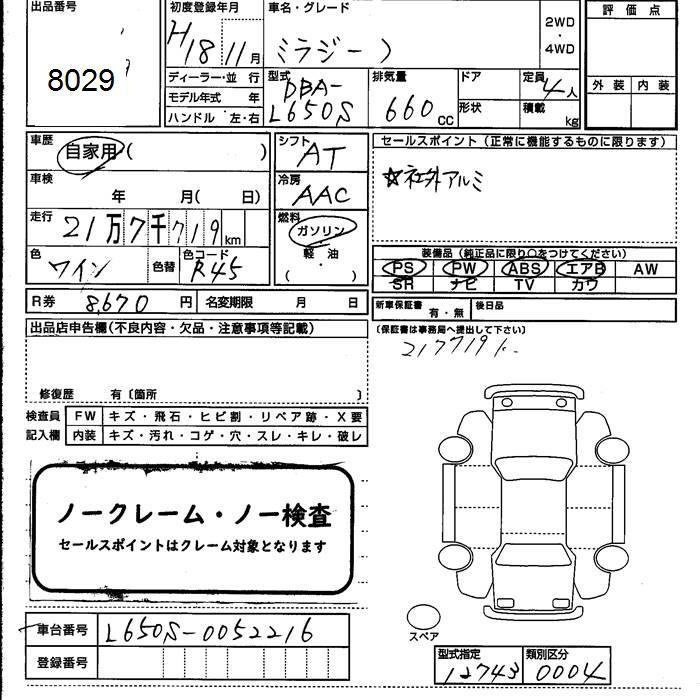 出品番号
8029
初度登録年月
H18 11月
車名・グレード
ミラジーノ
2WD
・
4WD
評価点
外装 内装
ディーラー・並 行
モデル年式 年
ハンドル 左・右
型式
DBA-
L650S
排気量
660cc
ドア
形状
定員
4人
積載
kg
車歴
自家用 ( )
車検
年 月( 日)
走行
21万7千719km
色
ワイン
色替
色コード
R45
シフト
AT
冷房
AAC
燃料
ガソリン
軽・油
( )
セールスポイント(正常に機能するものに限ります)
☆社外アルミ
装備品(純正品に限り○をつけてください)
PS PW ABS エアB AW
SR ナビ TV カワ
R券 8,670円 名変期限 月 日
新車保証書 有・無 後日品
(保証書は事務局へ提出して下さい)
217719k
出品店申告欄(不良内容・欠品・注意事項等記載)
修復歴 有〔箇所 〕
検査員
記入欄
FW キズ・飛石・ヒビ割・リペア跡・X要
内装 キズ・汚れ・コゲ・穴・スレ・キレ・破レ
ノークレーム・ノー検査
セールスポイントはクレーム対象となります
スペア
車台番号 L650S-0052216
登録番号
型式指定
12743
類別区分
0004